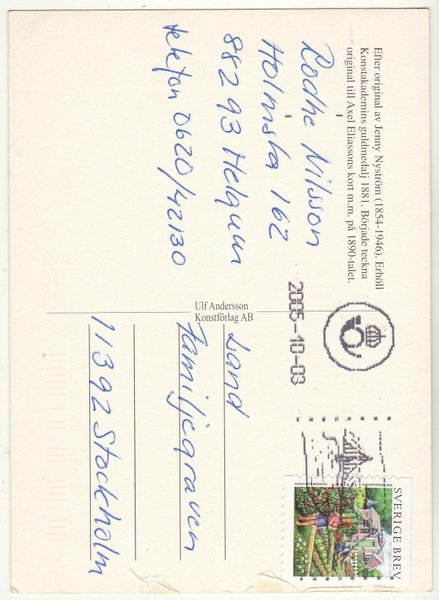 Efter original av Jenny Nyström (1854-1946). Erhöll
Konstakademins guldmedalj 1881. Började teckna
original till Axel Eliassons kort m.m. på 1890-talet.
Rodhe Nilsson
Holmsta 162
882 93 Helgum
telefon 0620/42130
Ulf Andersson
Konstförlag AB
2005-10-03
SVERIGE BREV
Land
Familjegraven
11392 Stockholm